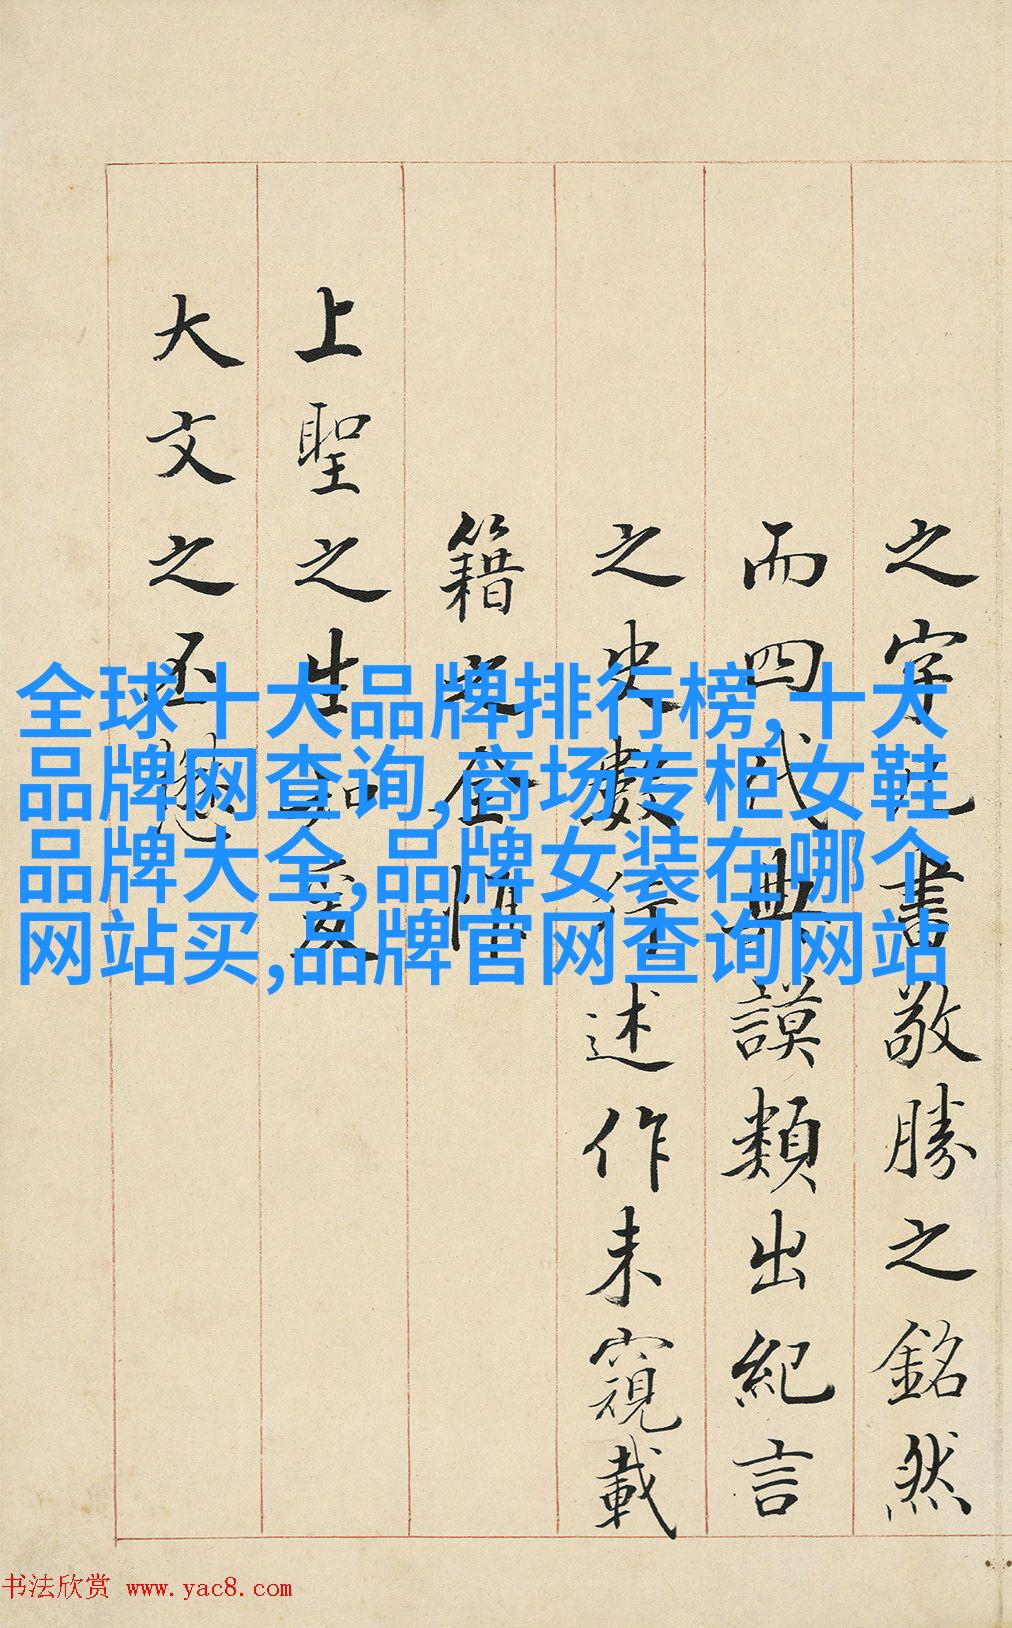 之字書敬勝之銘然
而四代典謨類出紀言
之史數行述作未窺載
籍之全
上聖之生
大文之丕
全球十大品牌排行榜,十大
品牌网查询,商场专柜女鞋
品牌大全,品牌女装在哪个
网站买,品牌官网查询网站
书法欣赏 www.yac8.com